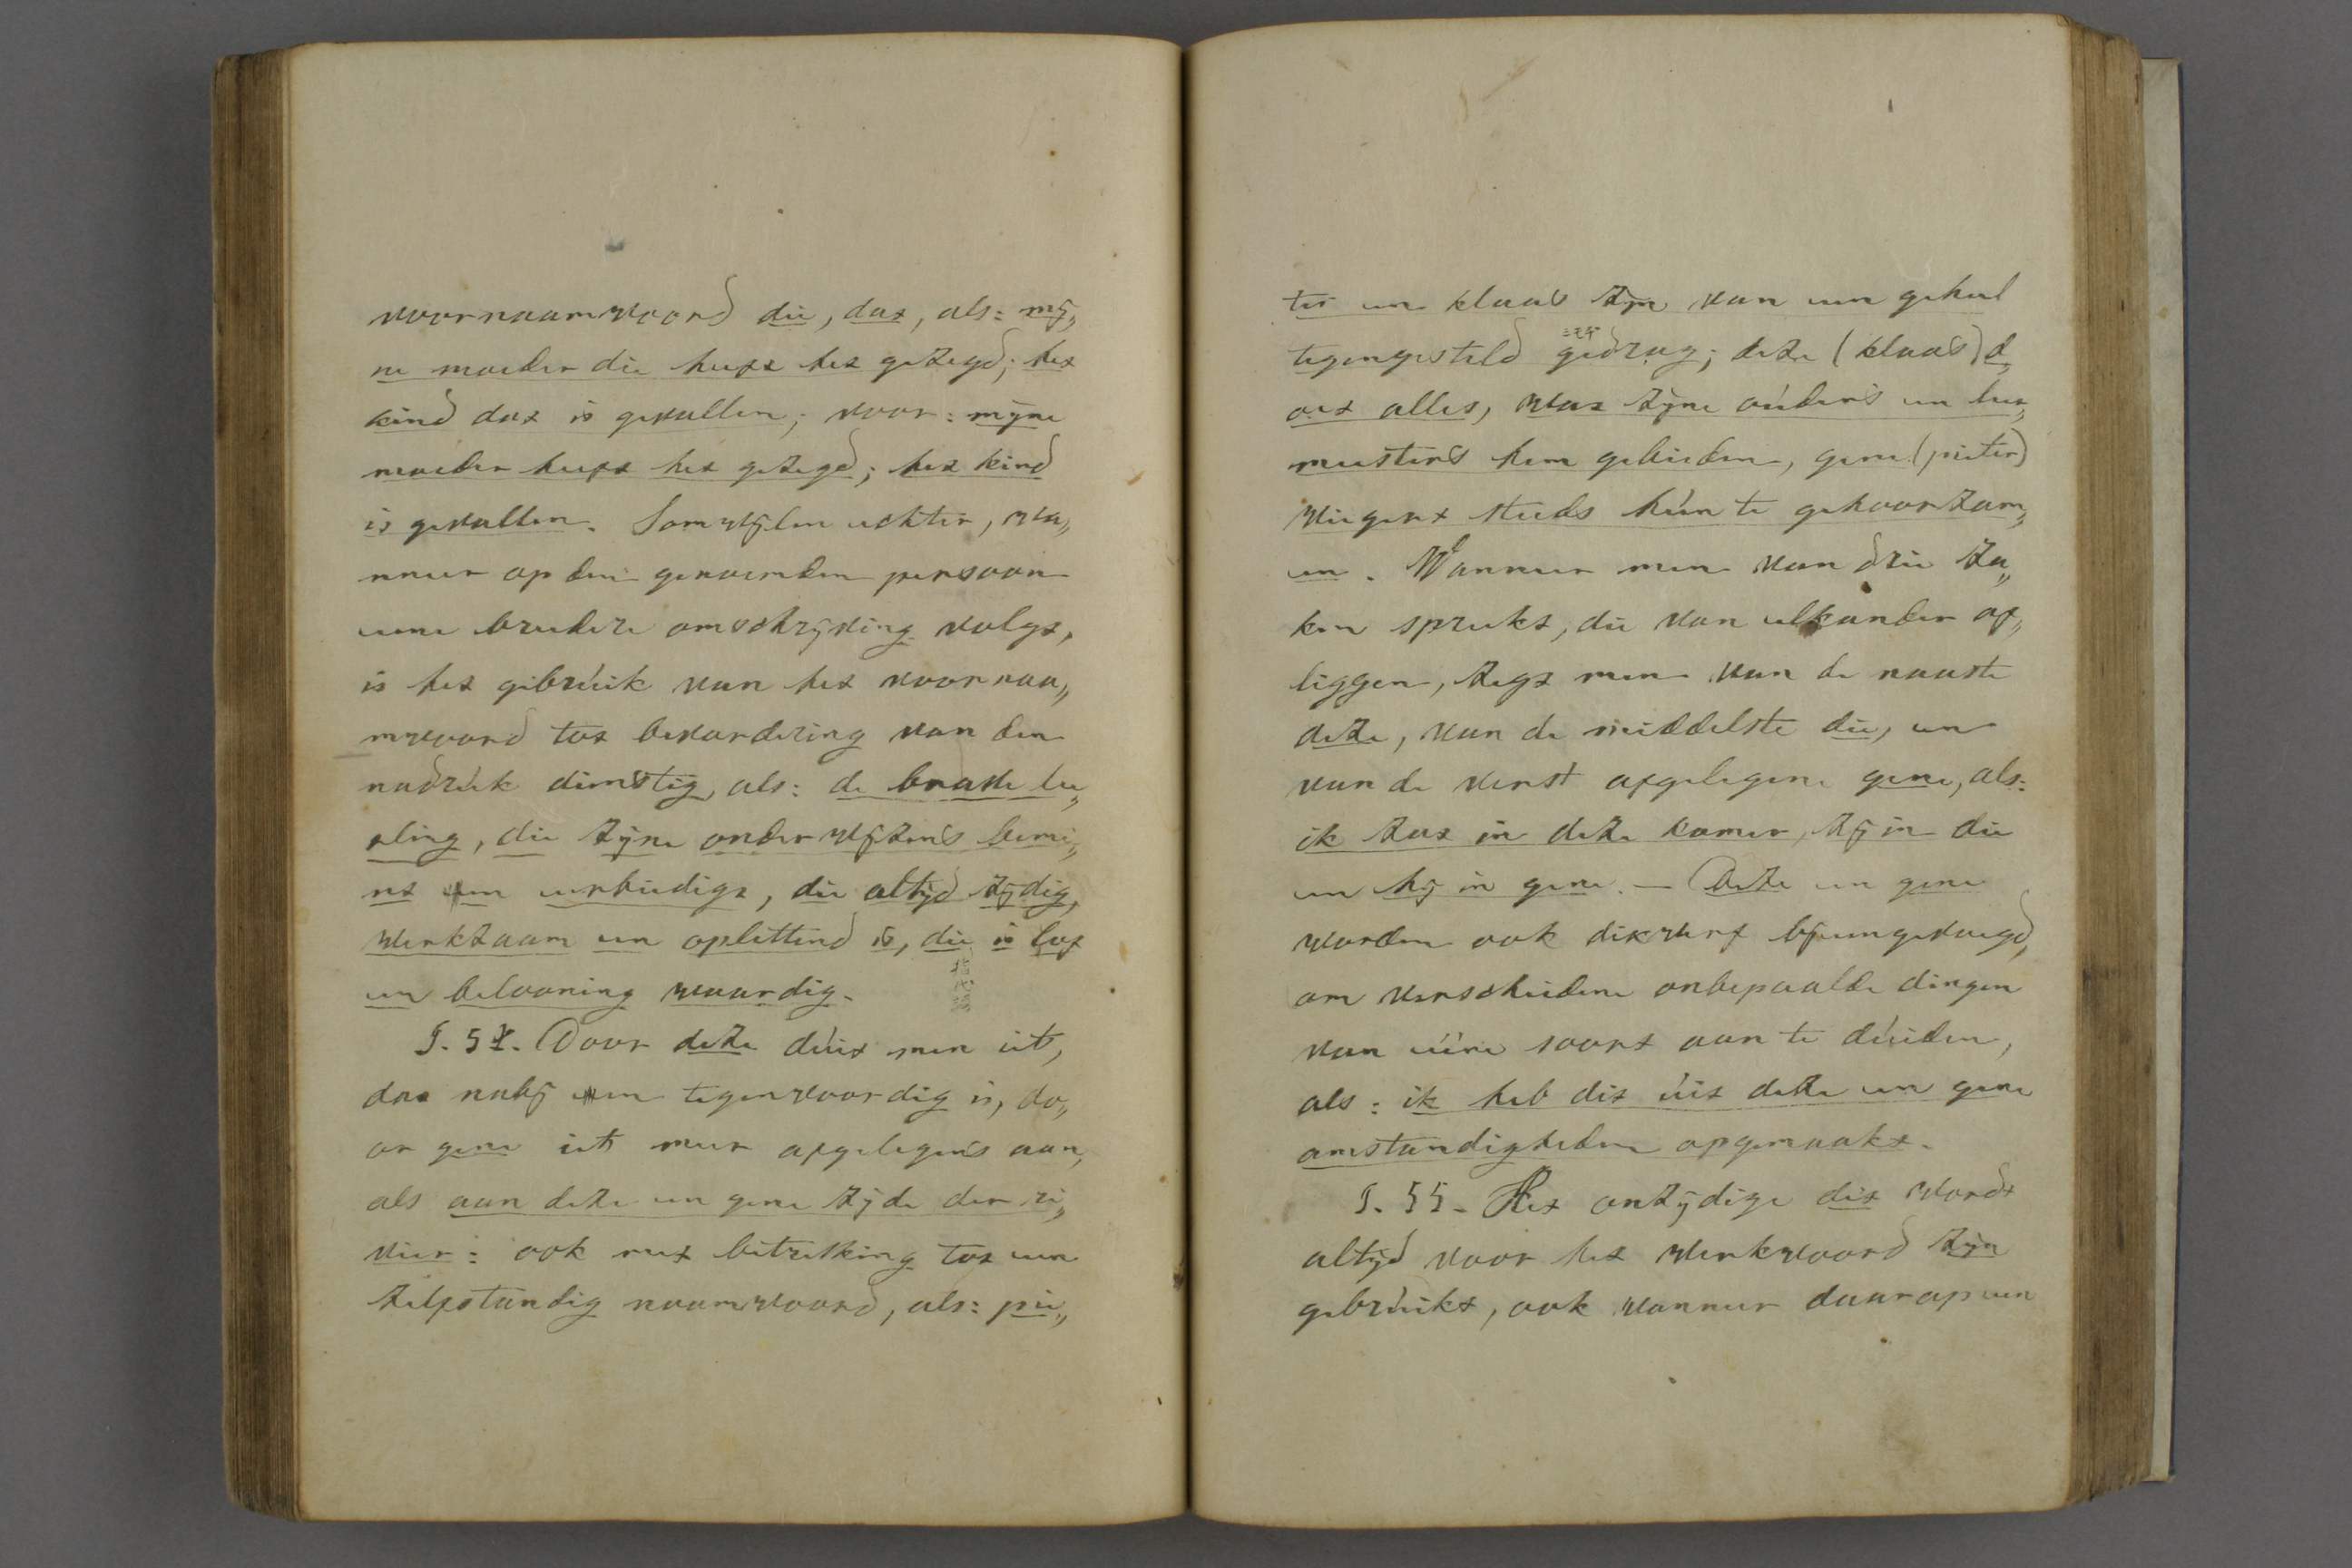 voornaamwoord die, dat, als: mij„
ne moeder die heeft het gezegd; het
kind dat is gevallen; voor: mijne
moeder heeft het gezegd; het kind
is gevallen. Somwijlen echter, wa„
nneer op den genoemden persoon
eene breedere omschrijving volgt,
is het gebruik van het voornaa„
mwoord tot bevordering van den
nadruk dienstig, als: de brave lee„
rling, die zijne onderwijzers bemi„
nt en eerbiedigt, die altijd vlijdig,
werkzaam en oplettend is, die is lof
en belooning waardig.
§. 54. Door deze duidt men iets,
dat nabij en tegenwoordig is, do„
or gene iets meer afgelegens aan,
als aan deze en gene zijde der ri„
vier: ook met betrekking tot een
zelfstandig naamwoord, als: pie„
ter en klaas zijn van een geheel
tegengesteld gedrag; deze (klaas) d
oet alles, wat zijne ouders en leer„
meesters hem gebieden, gene (pieter)
wiegert steeds hun te gehoorzam„
en. Wanneer men van drie za„
ken spreekt, die van elkander af„
liggen, zegt men van de naaste
deze, van de middelste die, en
van de verst afgelegene gene, als:
ik zat in deze kamer, zij in die
en hij in gene. — Deze en gene
worden ook dikwerf bijeengevoegd,
om verscheidene onbepaalde dingen
van ééne soort aan te duiden,
als: ik heb dit uit deze en gene
omstandigheden opgemaakt.
§. 55. Het onzijdige dit wordt
altijd voor het werkwoord zijn
gebruikt, ook wanneer daarop een